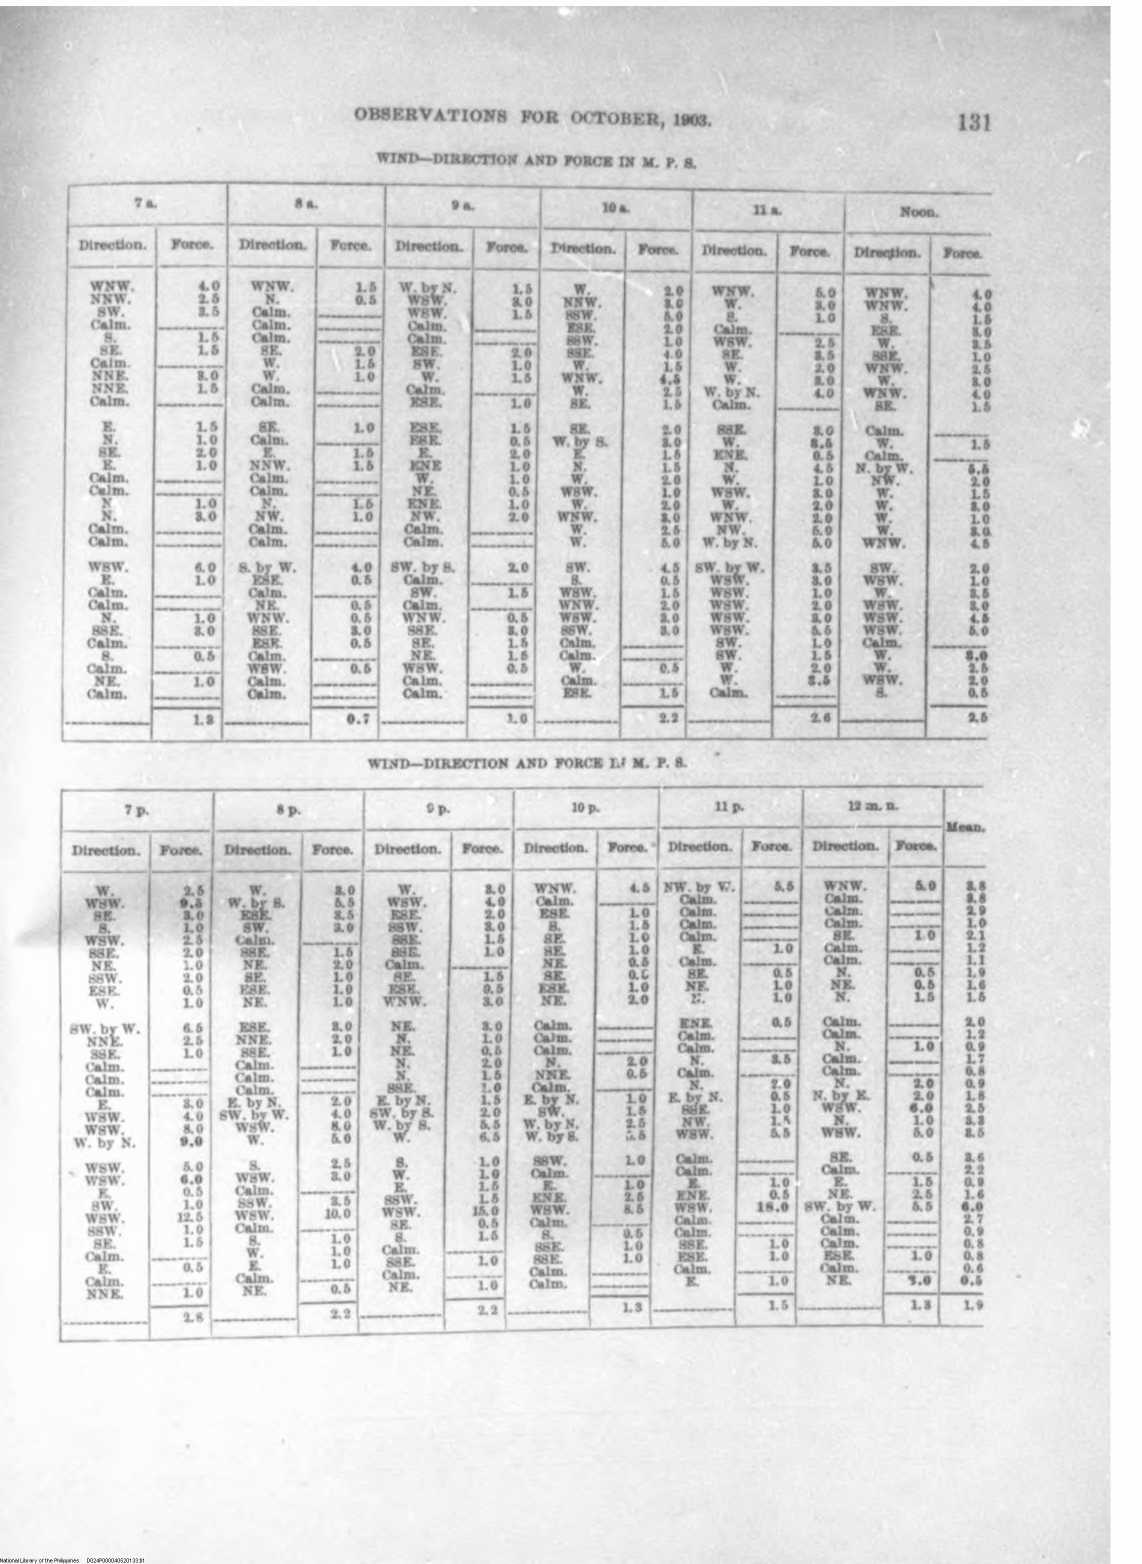 OBSERVATIONS FOR OCTOBER, 1903. 131
WIND—DIRECTION AND FORCE IN M. P. S.
7 a. 8 a. 9 a. 10 a. 11 a. Noon.
Direction. Force. Direction. Force. Direction. Force. Direction. Force. Direction. Force. Direction. Force.
WNW. 4.0 WNW. 1.5 W. by N. 1.5 W. 2.0 WNW. 5.0 WNW. 4.0
NNW. 2.5 N. 0.5 WSW. 3.0 NNW. 3.0 W. 3.0 WNW. 4.0
SW. 3.5 Calm. WSW. 1.5 SSW. 5.0 S. 1.0 S. 1.5
Calm. Calm. Calm. ESE. 2.0 Calm. ESE. 3.0
S. 1.5 Calm. Calm. SSW. 1.0 WSW. 2.5 W. 3.5
SE. 1.5 SE. 2.0 ESE. 2.0 SSE. 4.0 SE. 3.5 SSE. 1.0
Calm. W. 1.5 SW. 1.0 W. 1.5 W. 2.0 WNW. 2.5
NNE. 3.0 W. 1.0 W. 1.5 WNW. 4.5 W. 3.0 W. 3.0
NNE. 1.5 Calm. Calm. W. 2.5 W. by N. 4.0 WNW. 4.0
Calm. Calm. ESE. 1.0 SE. 1.5 Calm. SE. 1.5
E. 1.5 SE. 1.0 ESE. 1.5 SE. 2.0 SSE. 3.0 Calm.
N. 1.0 Calm. ESE. 0.5 W. by S. 3.0 W. 3.5 W. 1.5
SE. 2.0 E. 1.5 E. 2.0 E. 1.5 ENE. 0.5 Calm.
E. 1.0 NNW. 1.5 ENE 1.0 N. 1.5 N. 4.5 N. by W. 5.5
Calm. Calm. W. 1.0 W. 2.0 W. 1.0 NW. 2.0
Calm. Calm. NE. 0.5 WSW. 1.0 WSW. 3.0 W. 1.5
N. 1.0 N. 1.5 ENE. 1.0 W. 2.0 W. 2.0 W. 3.0
N. 3.0 NW. 1.0 NW. 2.0 WNW. 3.0 WNW. 2.0 W. 1.0
Calm. Calm. Calm. W. 2.5 NW. 5.0 W. 3.0
Calm. Calm. Calm. W. 5.0 W. by N. 5.0 WNW. 4.5
WSW. 6.0 S. by W. 4.0 SW. by S. 2.0 SW. 4.5 SW. by W. 3.5 SW. 2.0
E. 1.0 ESE. 0.5 Calm. S. 0.5 WSW. 3.0 WSW. 1.0
Calm. Calm. SW. 1.5 WSW. 1.5 WSW. 1.0 W. 3.5
Calm. NE. 0.5 Calm. WNW. 2.0 WSW. 2.0 WSW. 3.0
N. 1.0 WNW. 0.5 WNW. 0.5 WSW. 3.0 WSW. 3.0 WSW. 4.5
SSE. 3.0 SSE. 3.0 SSE. 3.0 SSW. 3.0 WSW. 5.5 WSW. 5.0
Calm. ESE. 0.5 SE. 1.5 Calm. SW. 1.0 Calm.
S. 0.5 Calm. NE. 1.5 Calm. SW. 1.5 W. 3.0
Calm. WSW. 0.5 WSW. 0.5 W. 0.5 W. 2.0 W. 2.5
NE. 1.0 Calm. Calm. Calm. W. 3.5 WSW. 2.0
Calm. Calm. Calm. ESE. 1.5 Calm. S. 0.5
1.3 0.7 1.0 2.2 2.6 2.5
WIND—DIRECTION AND FORCE IN M. P. S.
7 p. 8 p. 9 p. 10 p. 11 p. 12 m. n. Mean.
Direction. Force. Direction. Force. Direction. Force. Direction. Force. Direction. Force. Direction. Force.
W. 2.5 W. 3.0 W. 3.0 WNW. 4.5 NW. by W. 5.5 WNW. 5.0 3.8
WSW. 9.5 W. by S. 5.5 WSW. 4.0 Calm. Calm. Calm. 3.8
SE. 3.0 ESE. 3.5 ESE. 2.0 ESE. 1.0 Calm. Calm. 2.9
S. 1.0 SW. 3.0 SSW. 3.0 S. 1.5 Calm. Calm. 1.0
WSW. 2.5 Calm. SSE. 1.5 SE. 1.0 Calm. SE. 1.0 2.1
SSE. 2.0 SSE. 1.5 SSE. 1.0 SE. 1.0 E. 1.0 Calm. 1.2
NE. 1.0 NE. 2.0 Calm. NE. 0.5 Calm. Calm. 1.1
SSW. 2.0 SE. 1.0 SE. 1.5 SE. SE. 0.5 N. 0.5 1.9
ESE. 0.5 ESE. 1.0 ESE. 0.5 ESE. 1.0 NE. 1.0 NE. 0.5 1.6
W. 1.0 NE. 1.0 WNW. 3.0 NE. 2.0 1.0 N. 1.5 1.5
SW. by W. 6.5 ESE. 3.0 NE. 3.0 Calm. ENE. 0.5 Calm. 2.0
NNE. 2.5 NNE. 2.0 N. 1.0 Calm. Calm. Calm. 1.2
SSE. 1.0 SSE. 1.0 NE. 0.5 Calm. Calm. N. 1.0 0.9
Calm. Calm. N. 2.0 N. 2.0 N. 3.5 Calm. 1.7
Calm. Calm. N. 1.5 NNE. 0.5 Calm. Calm. 0.8
Calm. Calm. SSE. 1.0 Calm. N. 2.0 N. 2.0 0.9
E. 3.0 E. by N. 2.0 E. by N. 1.5 E. by N. 1.0 E. by N. 0.5 N. by E. 2.0 1.8
WSW. 4.0 SW. by W. 4.0 SW. by S. 2.0 SW. 1.5 SSE. 1.0 WSW. 6.0 2.5
WSW. 8.0 WSW. 8.0 W. by S. 5.5 W. by N. 2.5 NW. N. 1.0 3.3
W. by N. 9.0 W. 5.0 W. 6.5 W. by S. WSW. 5.5 WSW. 5.0 3.5
WSW. 5.0 S. 2.5 S. 1.0 SSW. 1.0 Calm. SE. 0.5 3.6
WSW. 6.0 WSW. 3.0 W. 1.0 Calm. Calm. Calm. 2.2
E. 0.5 Calm. E. 1.5 E. 1.0 E. 1.0 E. 1.5 0.9
SW. 1.0 SSW. 3.5 SSW. 1.5 ENE. 2.5 ENE. 0.5 NE. 2.5 1.6
WSW. 12.5 WSW. 10.0 WSW. 15.0 WSW. 8.5 WSW. 18.0 SW. by W. 5.5 6.0
SSW. 1.0 Calm. SE. 0.5 Calm. Calm. Calm. 2.7
SE. 1.5 S. 1.0 S. 1.5 S. 0.5 Calm. Calm. 0.9
Calm. W. 1.0 Calm. SSE. 1.0 SSE. 1.0 Calm. 0.8
E. 0.5 E. 1.0 SSE. 1.0 SSE. 1.0 ESE. 1.0 ESE. 1.0 0.8
Calm. Calm. Calm. Calm. Calm. Calm. 0.6
NNE. 1.0 NE. 0.5 NE. 1.0 Calm. E. 1.0 NE. 3.0 0.5
2.8 2.2 2.2 1.3 1.5 1.3 1.9
National Library of the Philippines